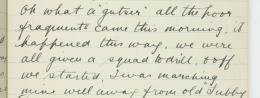 Oh what a "gutser" all the poor
fragments came this morning, it
happened this way, we were
all given a squad to drill, & off
we started, I was marching
mine well away from old Tubby